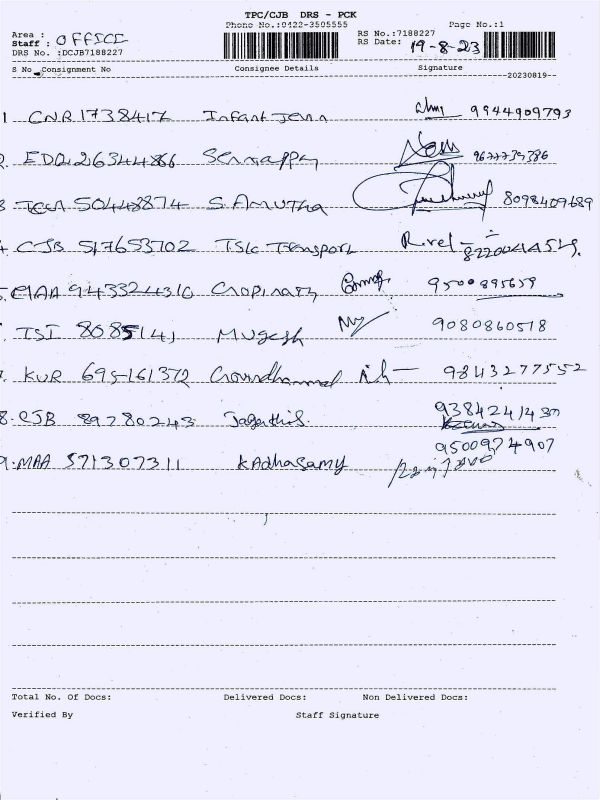 TPC/CJB DRS - PCK
Phone No.:0422-3505555 Page No.:1
Area : RS No.:7188227
Staff : OFFICE RS Date: 19-8-23
DRS No. :DCJB7188227
S No Consignment No Consignee Details Signature
--20230819--
1 CNR 1738417 Infant Jenn 9944909793
EDQ 26344866 Sennappan
50448874 S. AMUTHA 8098409689
CJB 517653702 TSIC Transport R.vel
MAA 943324310 Gopinath 9500895659
TSI 8085141 Mugesh 9080860518
KUR 695161372 Govindhammal 9843277552
8. CJB 89780243 Jagathis. 9384241430
9. MAA 571307311 KAdhasamy 9500974907
Total No. Of Docs: Delivered Docs: Non Delivered Docs:
Verified By Staff Signature